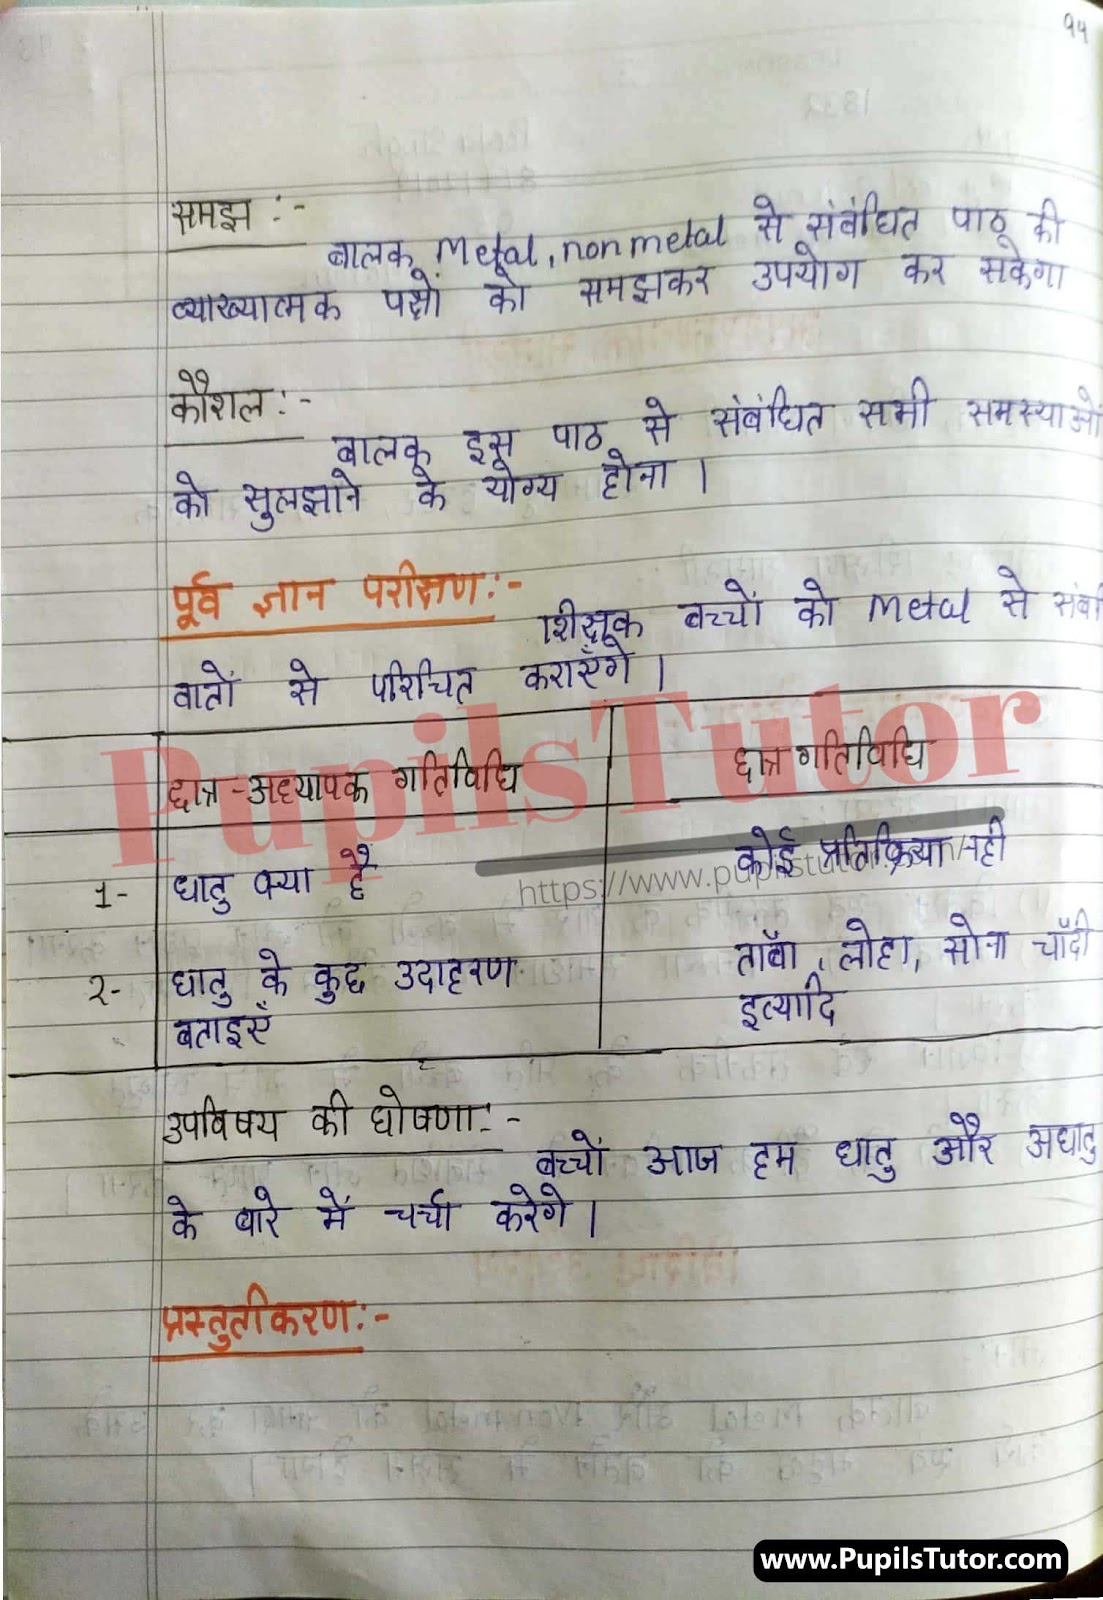 १५
समझ :-
बालक Metal, nonmetal से संबंधित पाठ की
व्याख्यात्मक पक्षों को समझकर उपयोग कर सकेगा
कौशल :-
बालक इस पाठ से संबंधित सभी समस्याओं
को सुलझाने के योग्य होना ।
पूर्व ज्ञान परीक्षण :-
शिक्षक बच्चों को Metal से संबं
बातों से परिचित कराएँगे ।
PupilsTutor
छात्र-अध्यापक गतिविधि
छात्र गतिविधि
1- धातु क्या है
कोई प्रतिक्रिया नही
https://www.pupilstutor.com/
२- धातु के कुछ उदाहरण
ताँबा , लोहा, सोना चाँदी
बताइएँ
इत्यादि
उपविषय की घोषणा :-
बच्चों आज हम धातु और अधातु
के बारे में चर्चा करेगे ।
प्रस्तुतीकरण :-
www.PupilsTutor.com